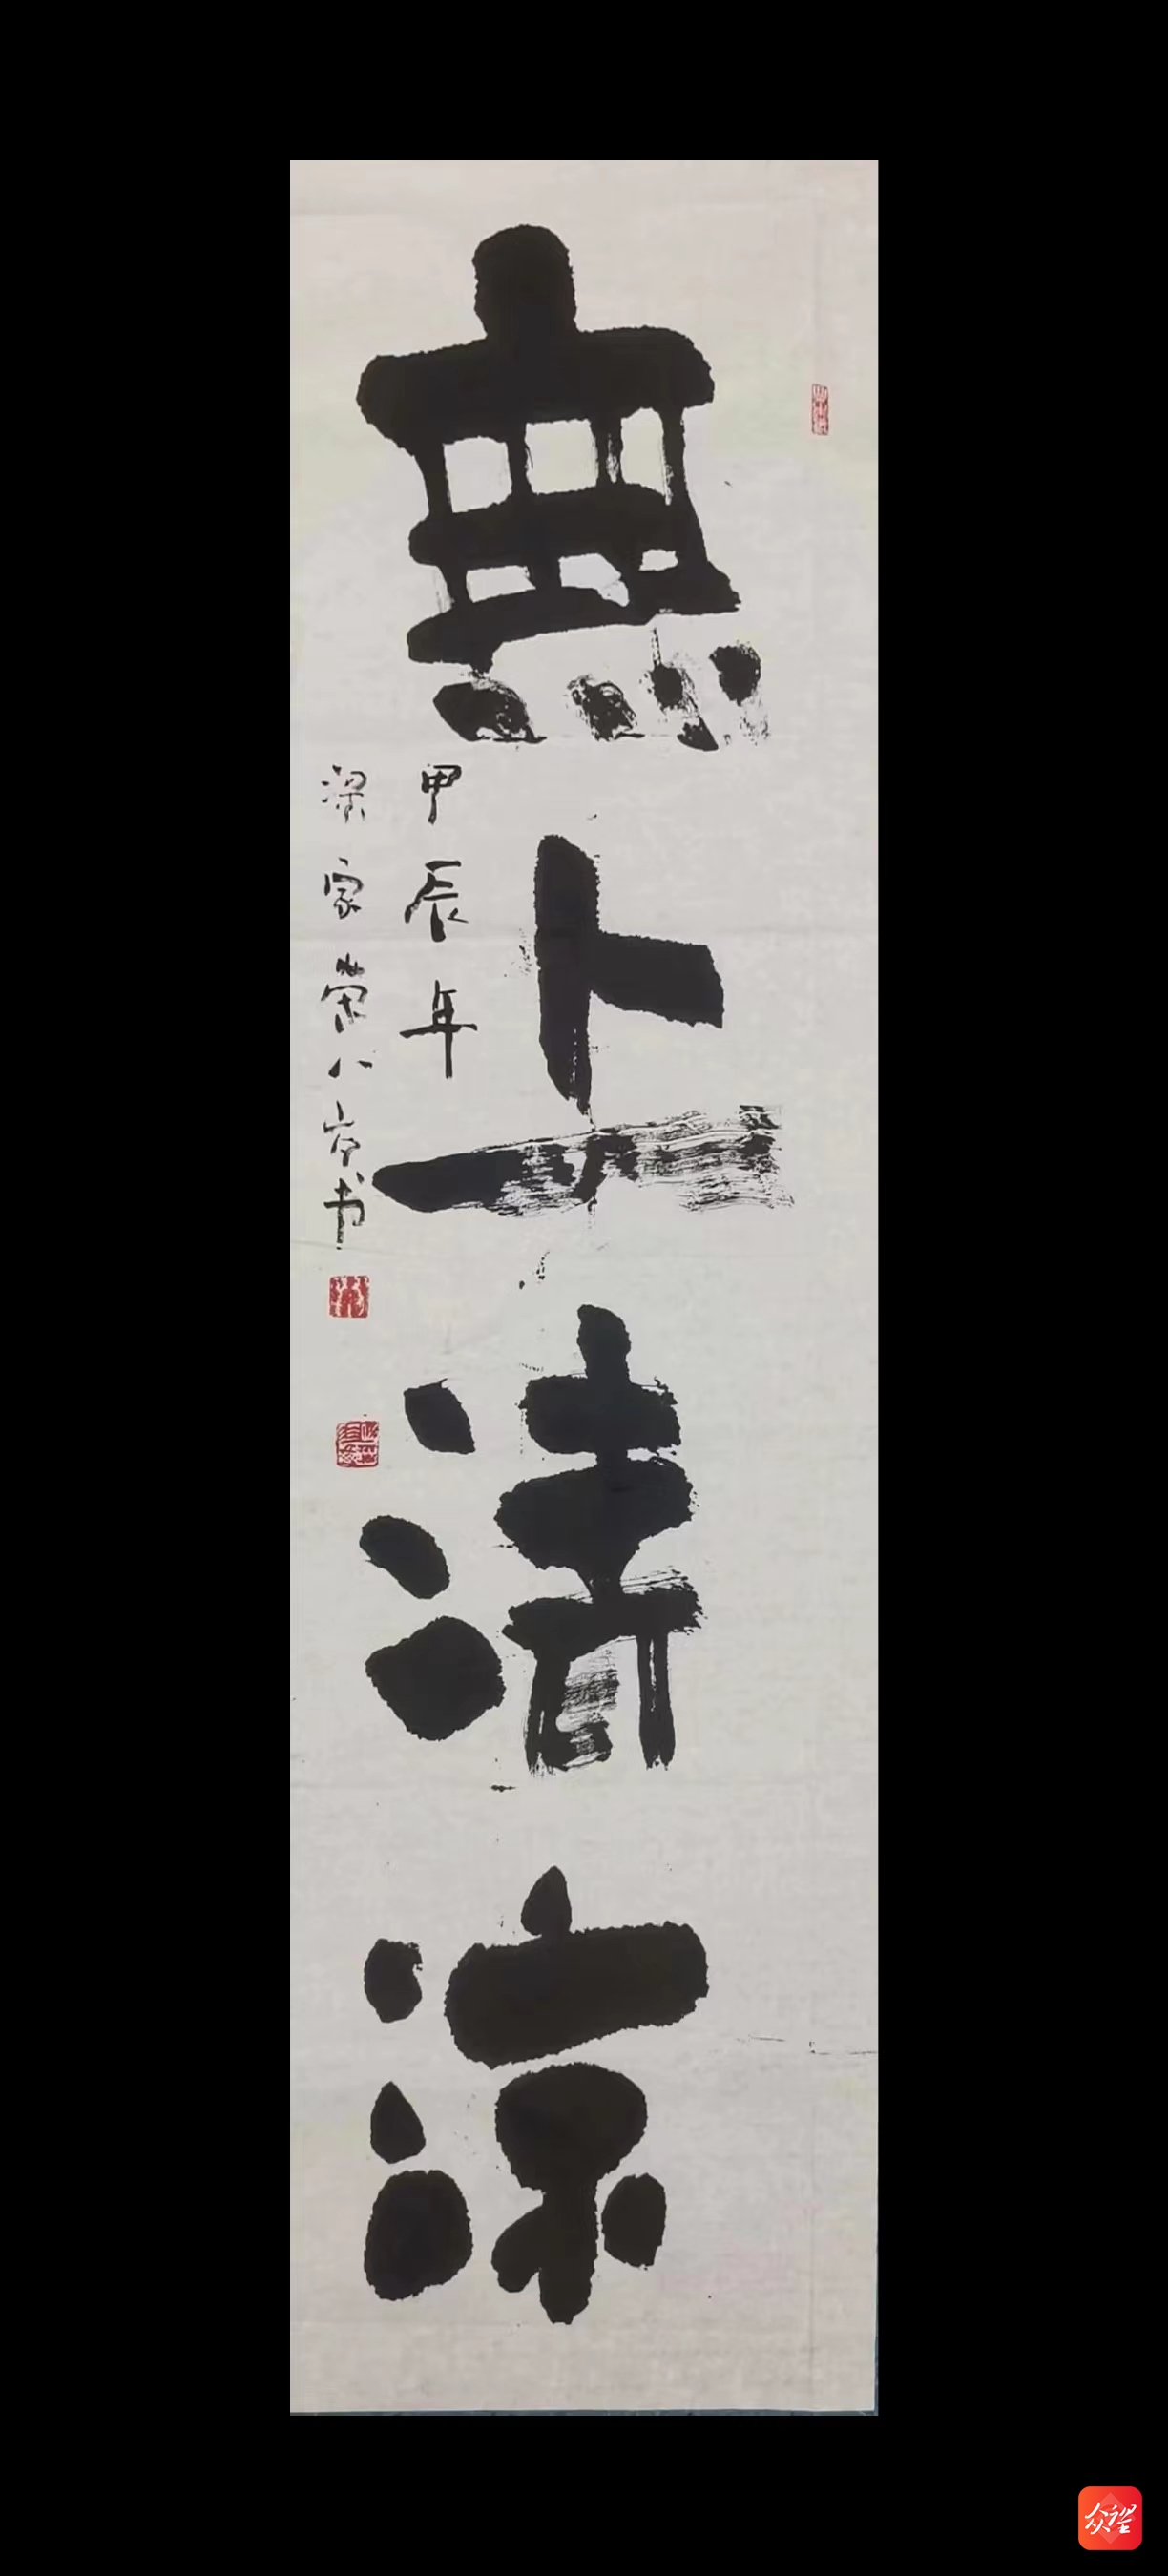 無上清涼
甲辰年
梁家荣八十岁书
众望